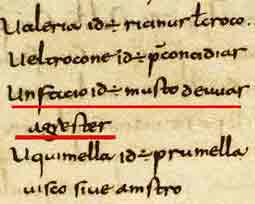 Valeria id÷ ricinur t croco.
Vel crocone id÷ p concidiar
Unfacio id÷ musto de uuar
agrester
Uquimella id÷ prumella
uisco siue amstro